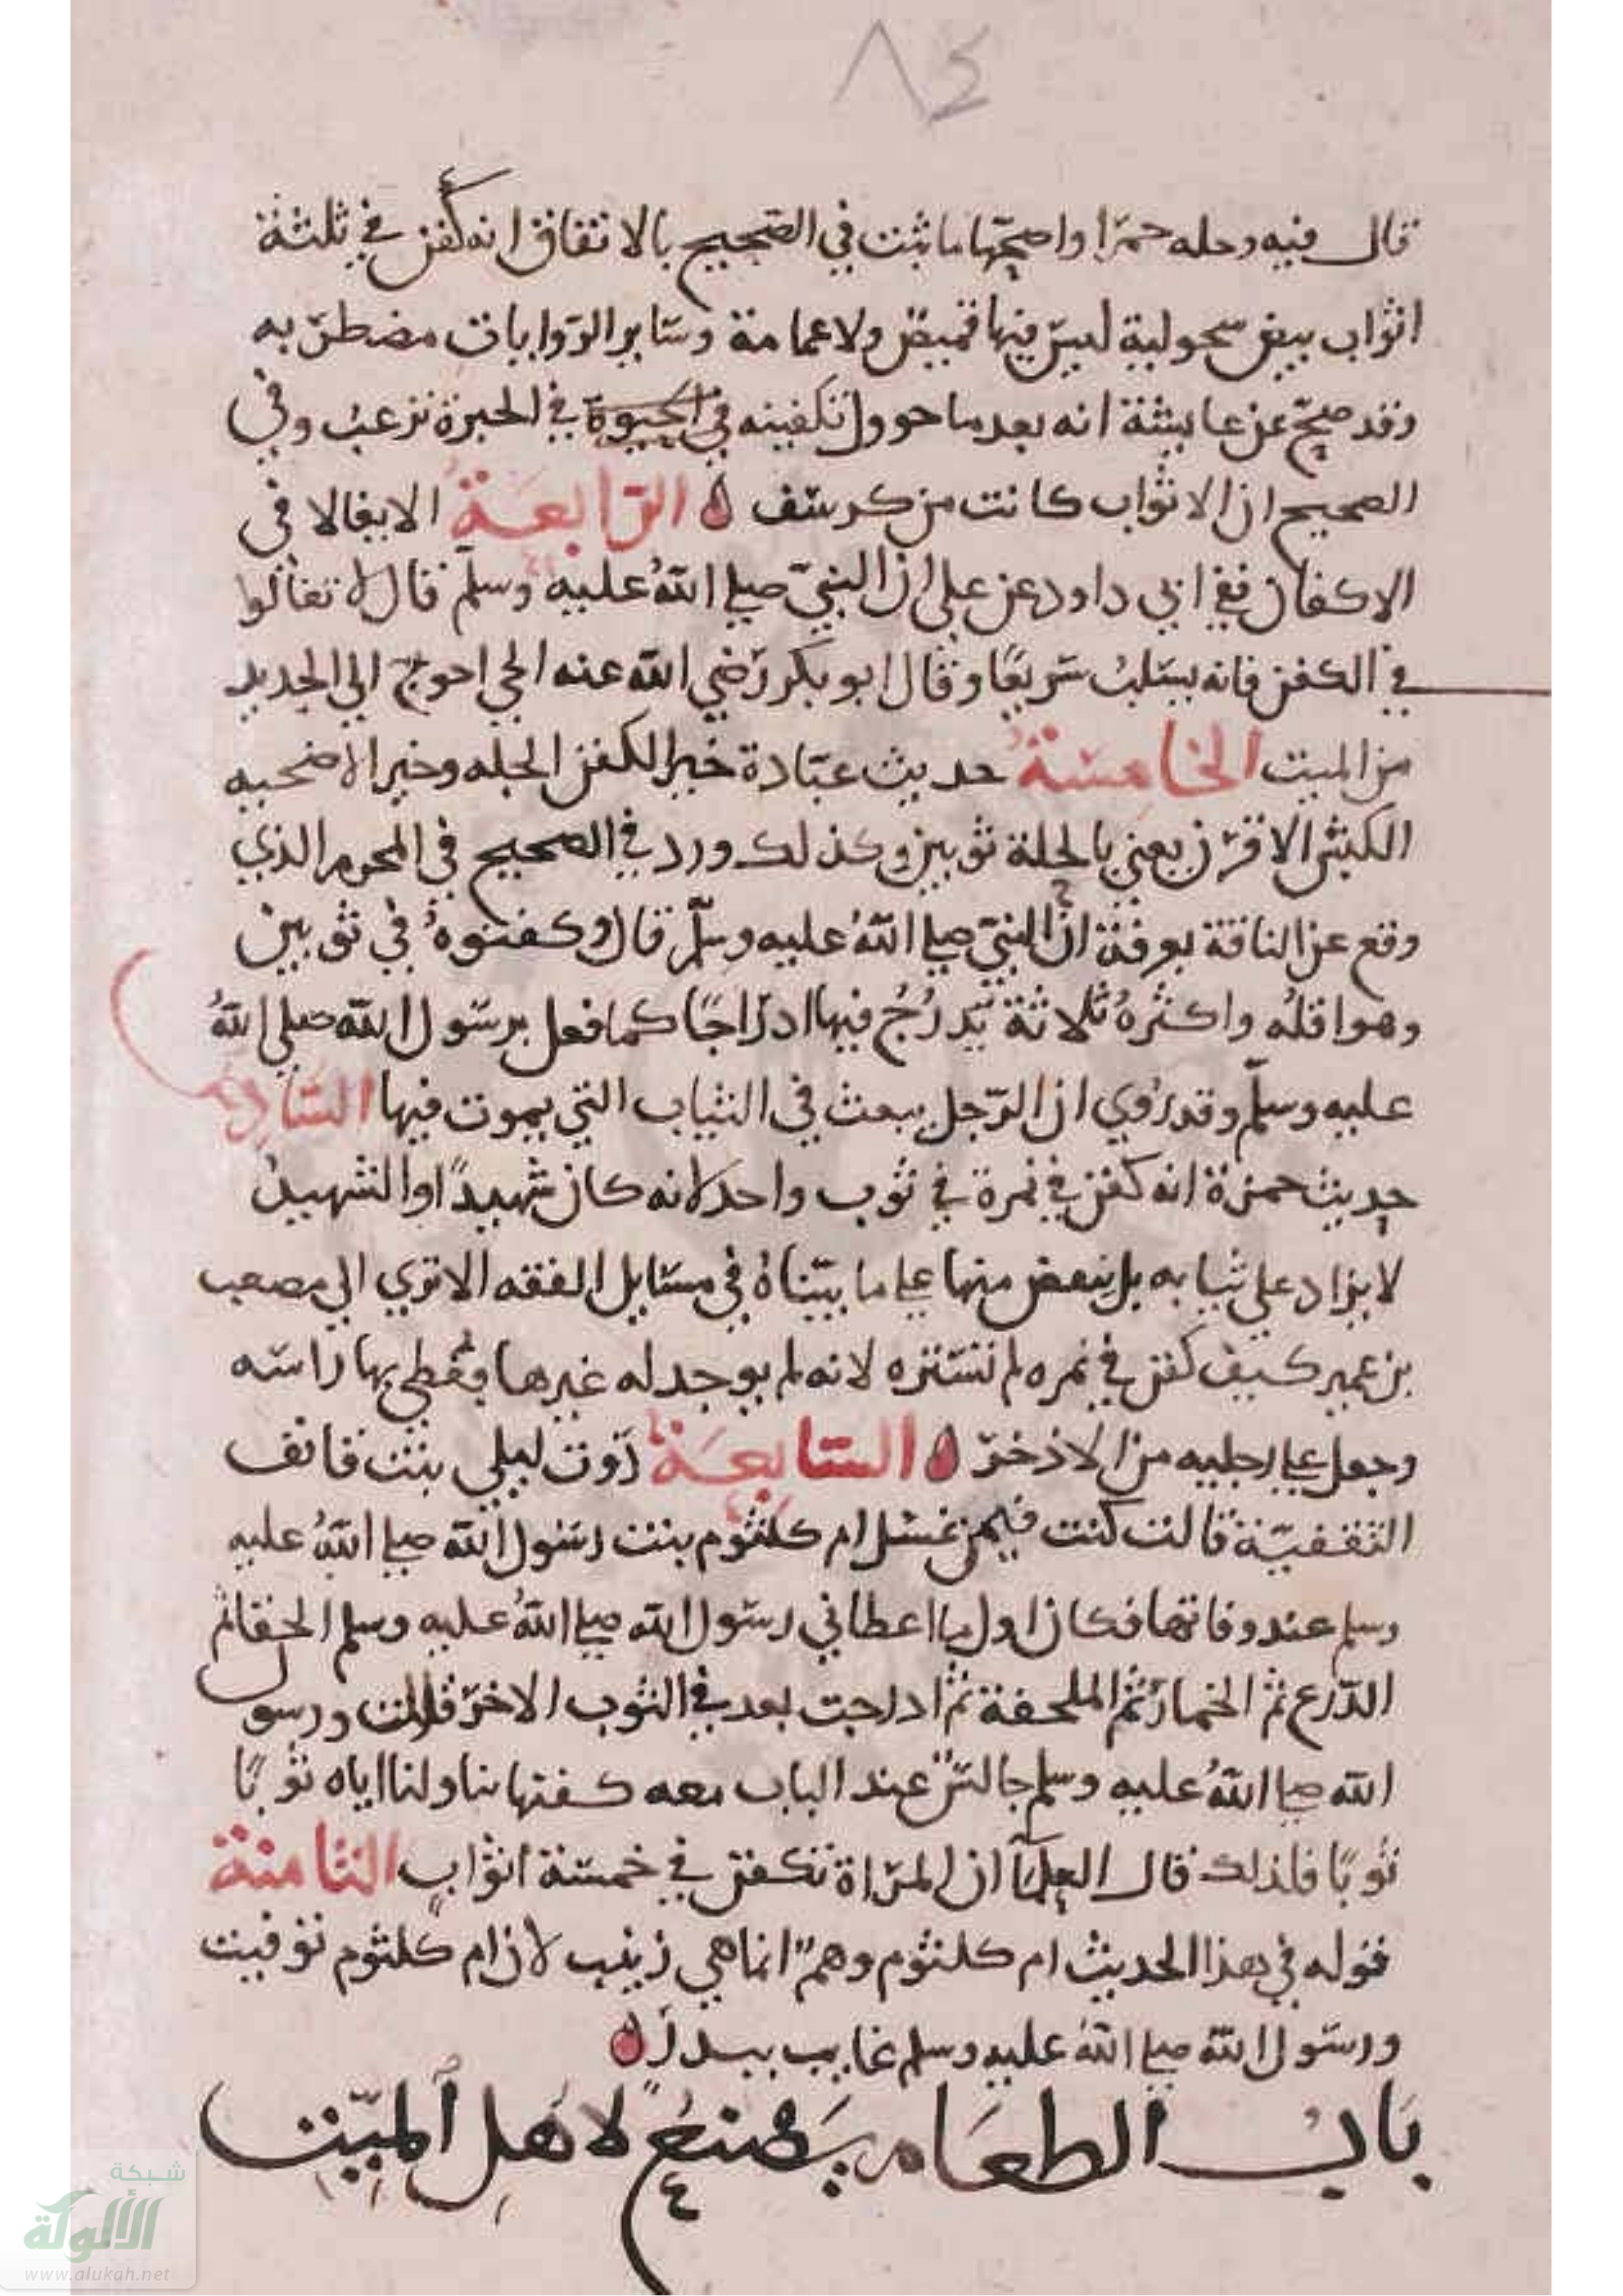 ٨٤
قال فيه وحله حمرا واصحها ما ثبت في الصحيح بالاتفاق انه كفن في ثلثة
اثواب بيض سحولية ليس فيها قميص ولا عمامة وسائر الروايات مضطربه
وقد صح عن عايشة انه بعد ما حوول تكفينه في الحبرة نزعت وفي
الصحيح ان الاثواب كانت من كرسف الرابعة الا يغالا في
الاكفان ففي ابي داود عن علي ان النبي صلى الله عليه وسلم قال لا تغالوا
في الكفن فانه يسلب سريعا وقال ابو بكر رضي الله عنه الحي احوج الي الجديد
من الميت الخامسة حديث عبادة خير الكفن الحله وخير الاضحيه
الكبش الاقرن يعني بالحلة ثوبين وكذلك ورد في الصحيح في المحرم الذي
وقع عن الناقة بعرفة ان النبي صلى الله عليه وسلم قال وكفنوه في ثوبين
وهو اقله واكثره ثلاثة يدرج فيها ادراجا كما فعل برسول الله صلي الله
عليه وسلم وقد روي ان الرجل يبعث في الثياب التي يموت فيها السادسة
حديث حمزة انه كفن في نمرة في ثوب واحد لانه كان شهيدا والشهيد
لا يزاد علي ثيابه بل ينقص منها على ما بيناه في مسايل الفقه الا تري الي مصعب
بن عمير كيف كفن في نمره لم تستره لانه لم يوجد له غيرها فغطي بها راسه
وجعل على رجليه من الاذخر السابعة روت ليلي بنت قانف
الثقفية قالت كنت فيمن غسل ام كلثوم بنت رسول الله صلى الله عليه
وسلم عند وفاتها فكان اول ما اعطاني رسول الله صلى الله عليه وسلم الحقا ثم
الدرع ثم الخمار ثم الملحفة ثم ادرجت بعد في الثوب الاخر قالت ورسول
الله صلى الله عليه وسلم جالس عند الباب معه كفنها يناولنا اياه ثوبا
ثوبا فلذلك قال العلما ان المراة تكفن في خمسة اثواب الثامنة
قوله في هذا الحديث ام كلثوم وهم انما هي زينب لان ام كلثوم توفيت
ورسول الله صلى الله عليه وسلم غايب ببدر
باب الطعام يصنع لاهل الميت
شبكة
الألوكة
www.alukah.net